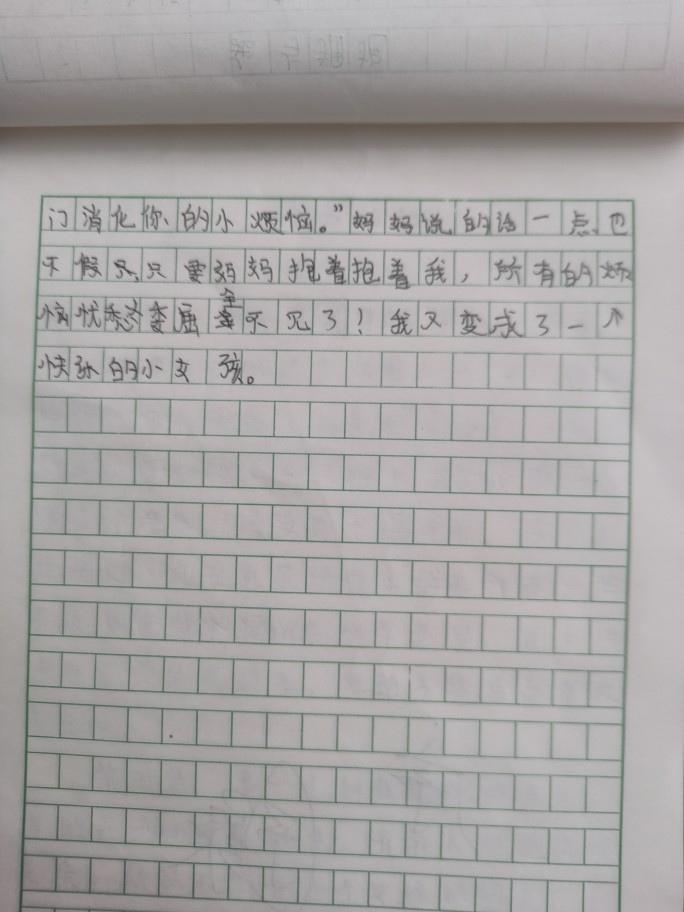 门消化你的小烦恼。”妈妈说的话一点也
不假只,只要妈妈抱着抱着我，所有的烦
恼忧愁委屈全不见了！我又变成了一个
快乐的小女孩。